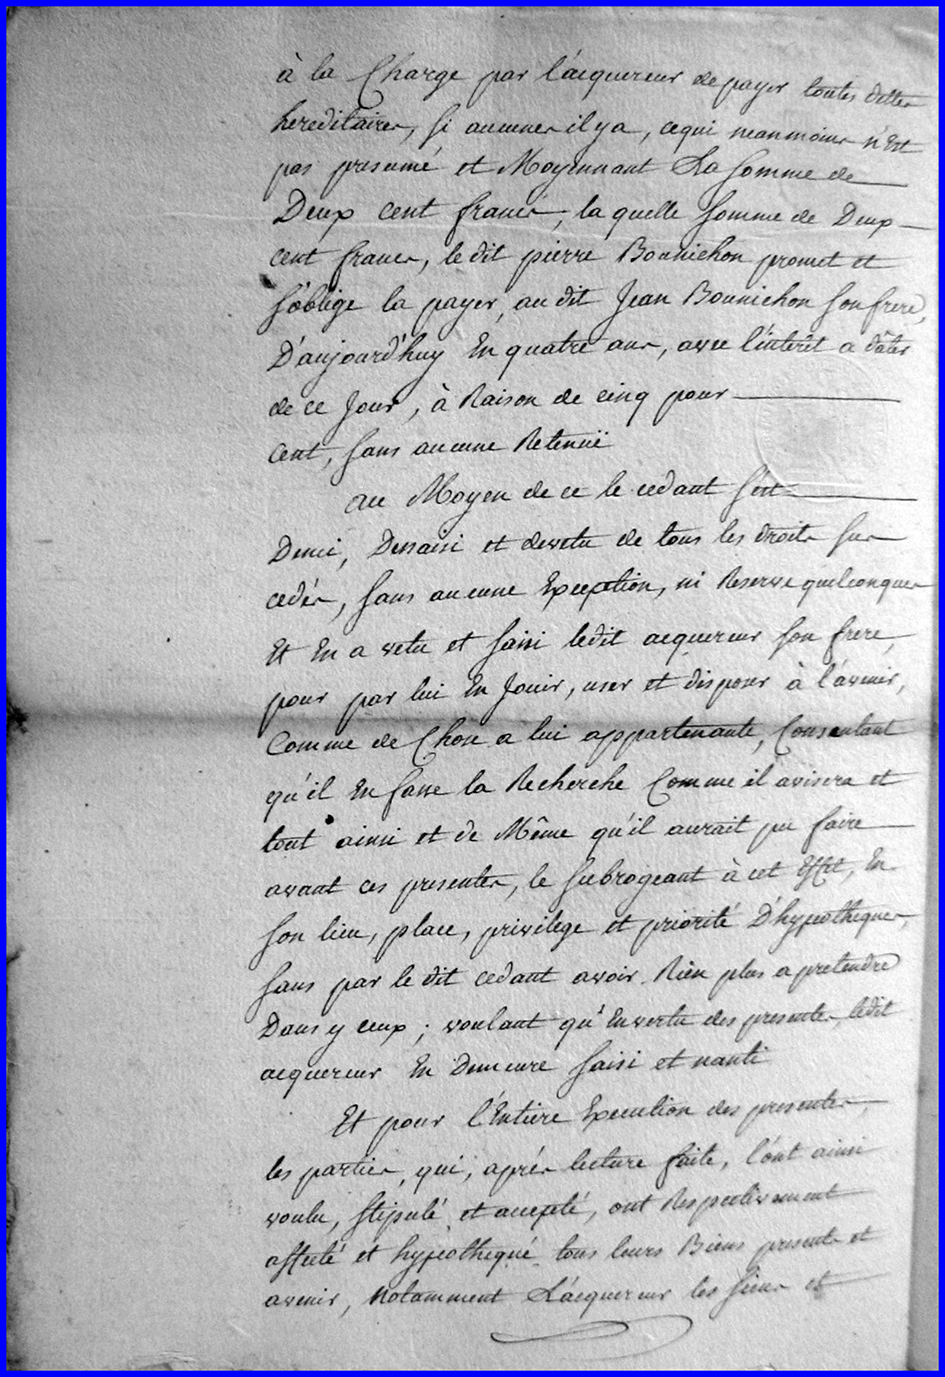 à la Charge par l'acquereur de payer toutes dettes
hereditaires, si aucunes il y a, ce qui neanmoins n'Est
pas presumé et Moyennant La somme de
Deux cent francs, la quelle somme de Deux
cent francs, le dit pierre Bonnichon promet et
s'oblige la payer, au dit Jean Bonnichon son frere,
D'aujourd'huy En quatre ans, avec l'interêt a dâter
de ce Jour, à Raison de cinq pour
Cent, sans aucune Retenuë
au Moyen de ce le cedant s'est
Demi, Dessaisi et devetu de tous les droits sus
cedés, sans aucune Exception, ni Reserve quelconques
Et En a vetu et saisi ledit acquereur son frere,
pour par lui En Jouir, user et disposer à l'avenir,
Comme de Chose a lui appartenante, Consentant
qu'il En fasse la Recherche Comme il avisera et
tout ainsi et de Même qu'il aurait pu faire
avant ces presentes, le subrogeant à cet Effet, En
son lieu, place, privilege et priorité D'hypotheques,
sans par le dit cedant avoir Rien plus a pretendre
Dans y ceux; voulant qu'En vertu des presentes, ledit
acquereur En Demeure saisi et nanti
Et pour l'Entiere Execution des presentes,
les parties, qui, aprés lecture faite, l'ont ainsi
voulu, stipulé et accepté, ont Respectivement
affecté et hypothequé tous leurs Biens presents et
avenir, Notamment L'acquereur les siens et